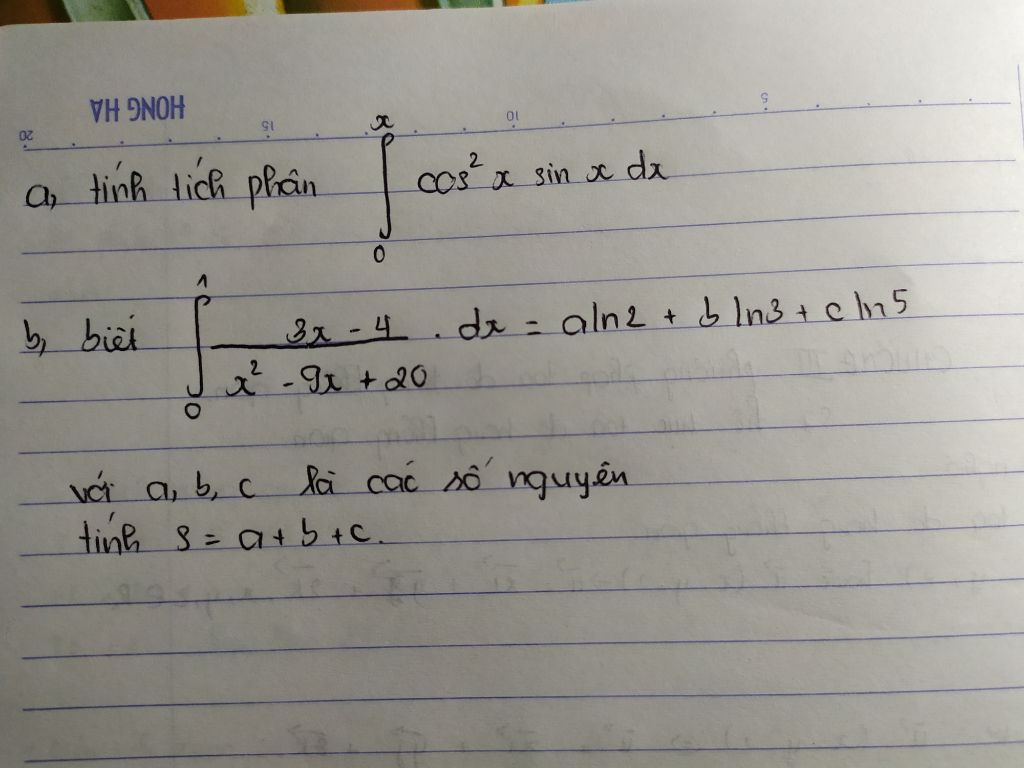 HONG HA
20 15 10 5
a, tính tích phân ∫₀ˣ cos² x sin x dx
b, biết ∫₀¹ (3x - 4)/(x² - 9x + 20) . dx = aln2 + b ln3 + c ln5
với a, b, c là các số nguyên
tính S = a + b + c.